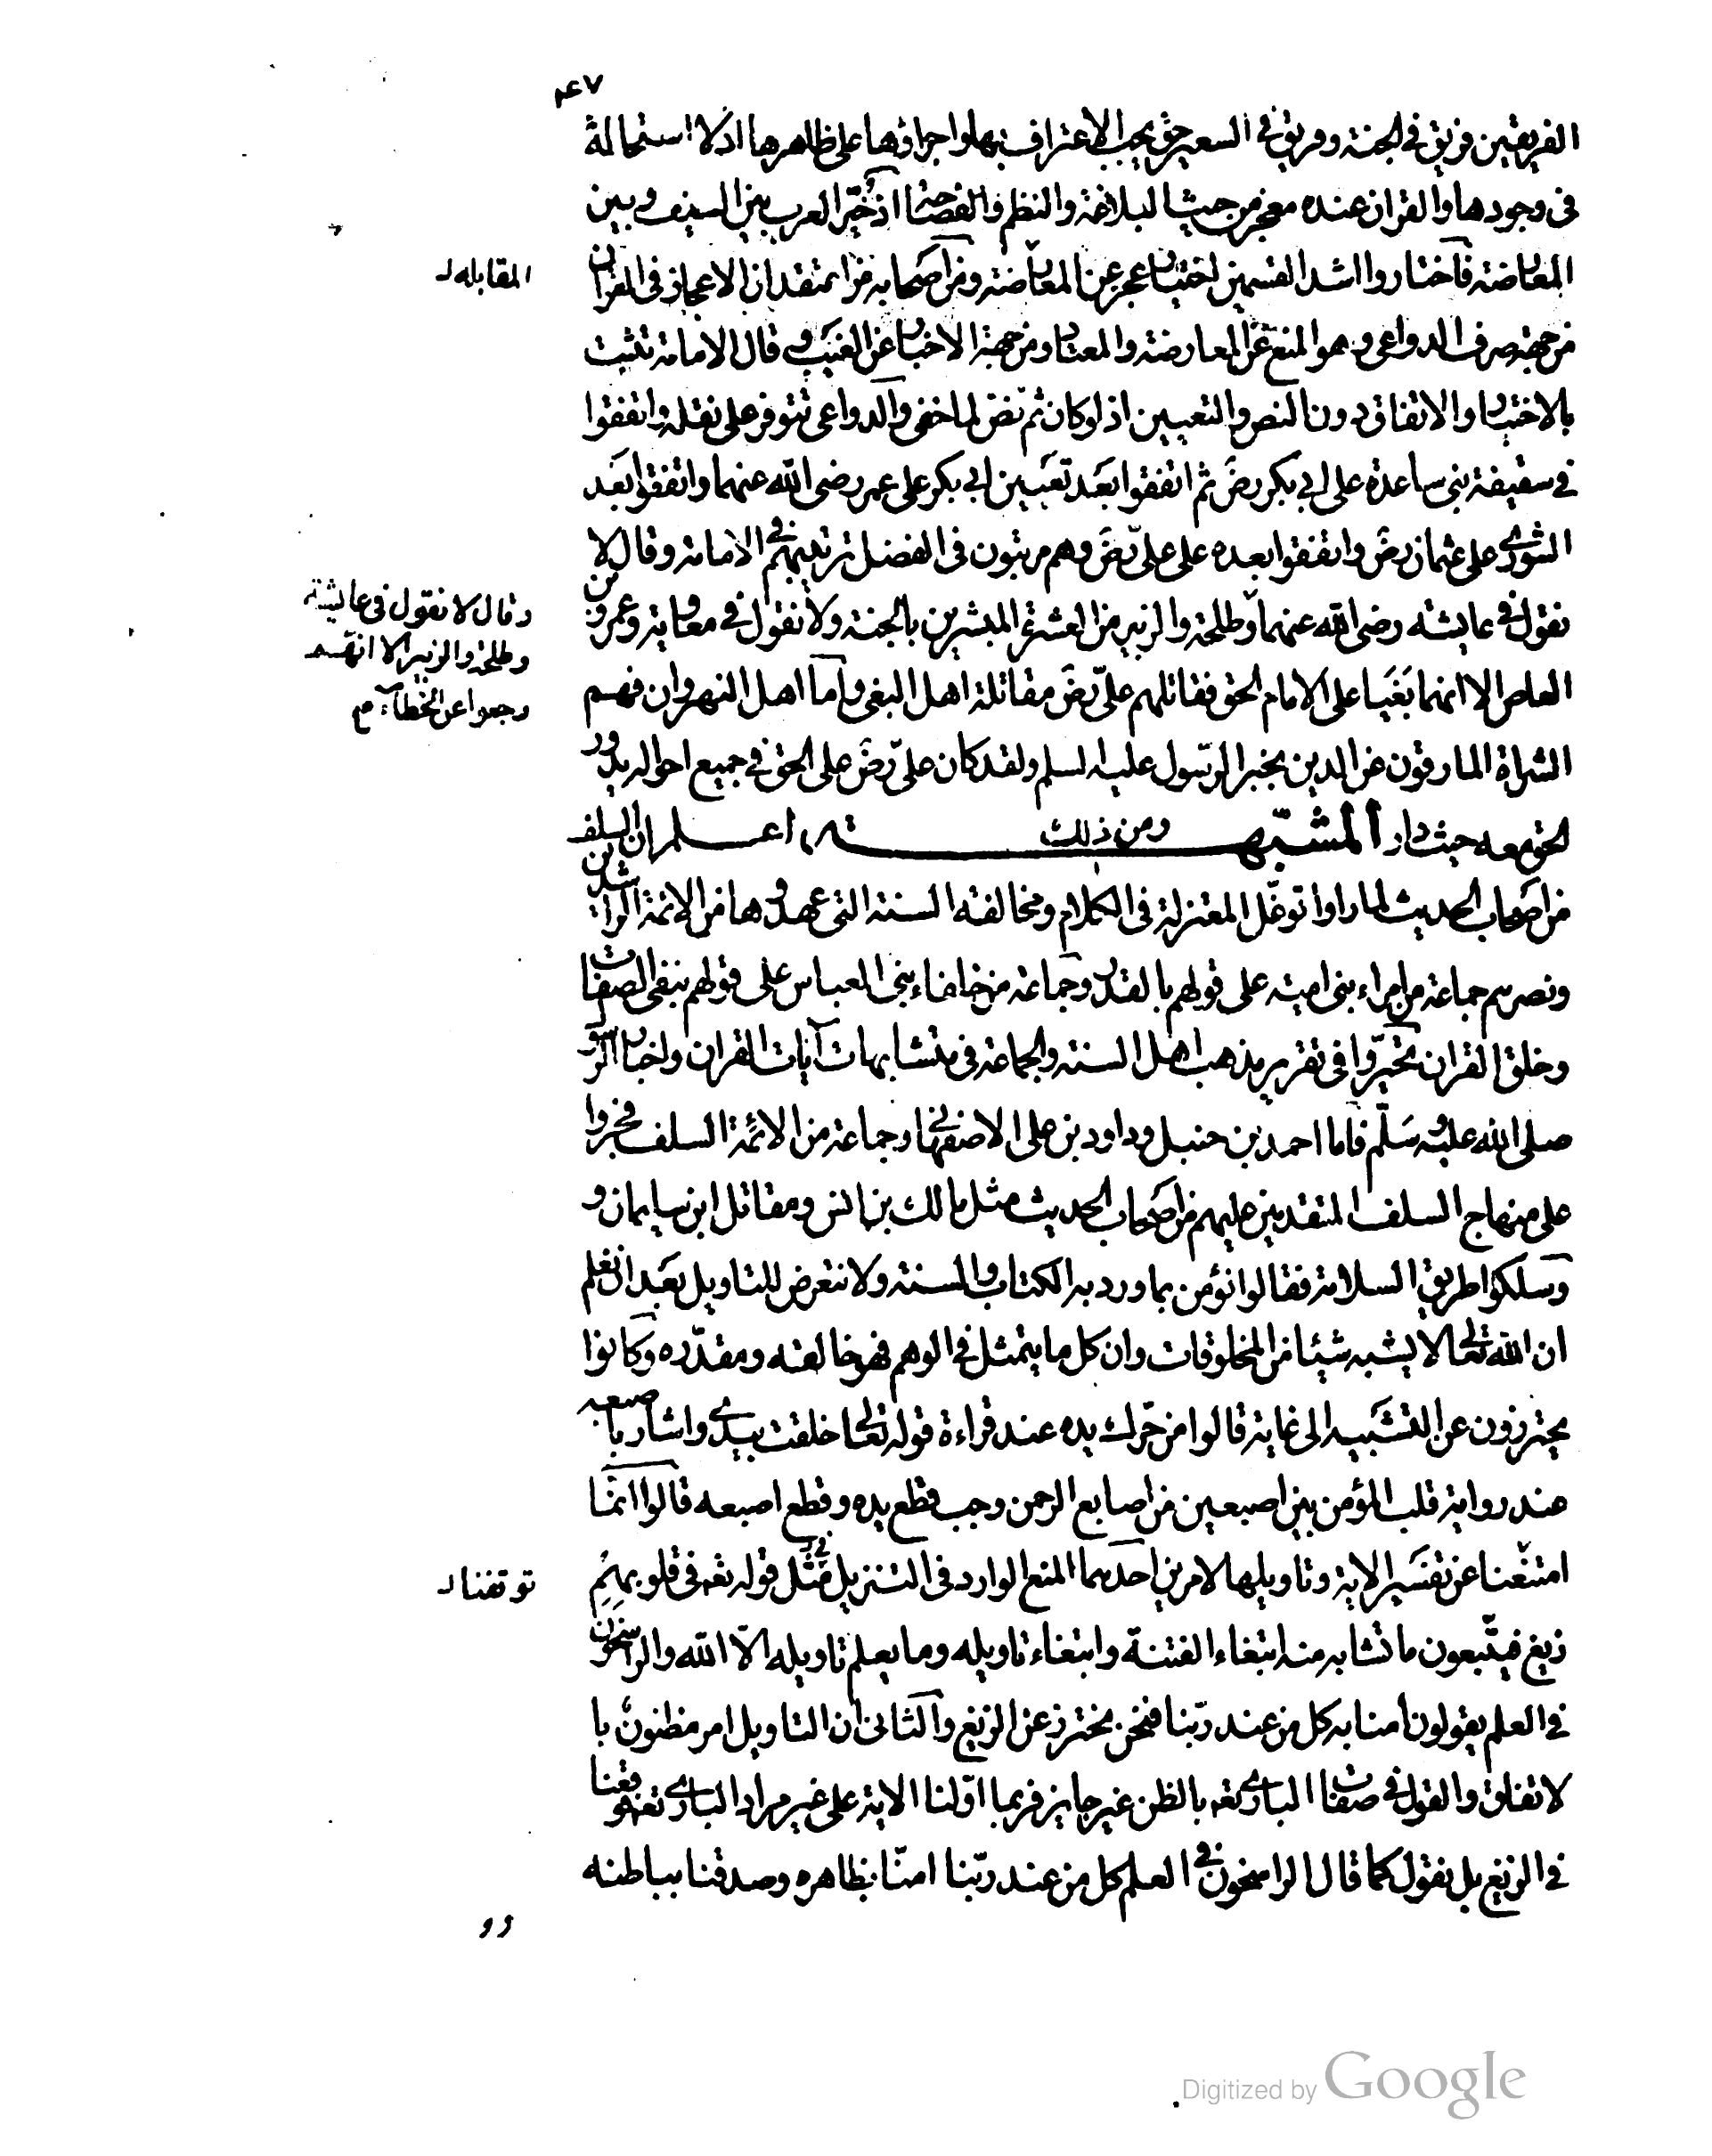 ٤٧
الفريقين فريق في الجنة وفريق في السعير حق يجب الاعتراف بها واجراؤها على ظاهرها اذ لا استحالة
في وجودها والقران عنده معجز من حيث البلاغة والنظم والفصاحة اذ خير العرب بين السيف وبين
المعارضة فاختاروا اشد القسمين اختيار عجز عن المعارضة ومن اصحابه من اعتقد ان الاعجاز في القران
المقابله
من جهة صرف الدواعي وهو المنع عن المعارضة والمعتاد ومن جهة الاخبار عن الغيب وقال الامامة تثبت
بالاختيار والاتفاق دون النص والتعيين اذ لو كان ثم نص لما خفي والدواعي تتوفر على نقله واتفقوا
في سقيفة بني ساعدة على ابي بكر رضَ ثم اتفقوا بعد تعيين ابي بكر على عمر رضى الله عنهما واتفقوا بعد
الشورى على عثمان رضَ واتفقوا بعده على علىّ رضَ وهم مرتبون في الفضل ترتيبهم في الامامة وقال لا
نقول في عايشه رضى الله عنهما وطلحة والزبير من العشرة المبشرين بالجنة ولا نقول في معاوية وعمرو بن
وقال لا نقول فى عايشة
وطلحة والزبير الا انهم
رجعوا عن الخطاء م
العاص الا انهما بغيا على الامام الحق فقاتلهم علىّ رضَ مقاتلة اهل البغي واما اهل النهروان فهم
الشراة المارقون عن الدين بخبر الرّسول عليه السلم ولقد كان علىّ رضَ على الحق في جميع احواله يدور
الحق معه حيث دار ومن ذلك المشبّهة اعلم ان السلف
من اصحاب الحديث لما راوا توغّل المعتزلة في الكلام ومخالفة السنة التى عهدوها من الائمة الراشدين
ونصرهم جماعة من امراء بني امية على قولهم بالقدر وجماعة من خلفاء بني العباس على قولهم بنفى الصفات
وخلق القران تحيّروا في تقرير مذهب اهل السنة والجماعة في متشابهات آيات القران واخبار الرسول
صلى الله عليه وسلّم فاما احمد بن حنبل وداود بن على الاصفهاني وجماعة من الائمة السلف فجروا
على منهاج السلف المتقدمين عليهم من اصحاب الحديث مثل مالك بن انس ومقاتل ابن سليمان و
وسلكوا طريق السلامة فقالوا نؤمن بما ورد به الكتاب والسنة ولا نتعرض للتاويل بعد ان نعلم
ان الله تعالى لا يشبه شيئا من المخلوقات وان كل ما يتمثل في الوهم فهو خالقه ومقدّره وكانوا
يحترزون عن التشبيه الى غاية قالوا من حرّك يده عند قراءة قوله تعالى خلقت بيدي واشار باصبعه
عند رواية قلب المؤمن بين اصبعين من اصابع الرحمن وجب قطع يده وقطع اصبعه قالوا انما
امتنعنا عن تفسير الاية وتاويلها لامرين احدهما المنع الوارد في التنزيل في مثل قوله تعه في قلوبهم
توقفنا
زيغ فيتّبعون ما تشابه منه ابتغاء الفتنة وابتغاء تاويله وما يعلم تاويله الّا الله والراسخون
في العلم يقولون امنا به كل من عند ربّنا فنحن نحترز عن الزيغ والثاني ان التاويل امر مظنون با
لاتفاق والقول في صفات البارى تعه بالظن غير جايز فربما اوّلنا الاية على غير مراد البارى تعه فوقعنا
في الزيغ بل نقول كما قال الراسخون في العلم كل من عند ربّنا امنّا بظاهره وصدقنا بباطنه
Digitized by Google